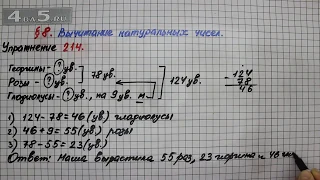 4BA5.RU
§8. Вычитание натуральных чисел.
Упражнение 214.
Георгины - ? цв.
Розы - ? цв. 78 цв.
Гладиолусы - ? цв., на 9 цв. м 124 цв.
124
78
46
1) 124 - 78 = 46 (цв) гладиолусы
2) 46 + 9 = 55 (цв) розы
3) 78 - 55 = 23 (цв)
Ответ: Маша вырастила 55 роз, 23 георгина и 46